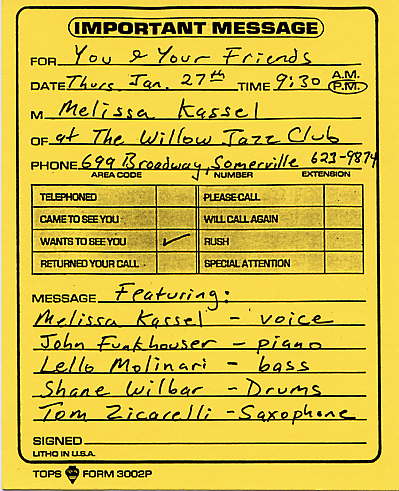 IMPORTANT MESSAGE
FOR You & Your Friends
DATE Thurs. Jan. 27th TIME 9:30 A.M. P.M.
M Melissa Kassel
OF at The Willow Jazz Club
PHONE 699 Broadway, Somerville 623-9874
AREA CODE NUMBER EXTENSION
TELEPHONED PLEASE CALL
CAME TO SEE YOU WILL CALL AGAIN
WANTS TO SEE YOU ✓ RUSH
RETURNED YOUR CALL SPECIAL ATTENTION
MESSAGE Featuring:
Melissa Kassel - voice
John Funkhouser - piano
Lello Molinari - bass
Shane Wilbar - Drums
Tom Zicarelli - Saxophone
SIGNED
LITHO IN U.S.A.
TOPS FORM 3002P